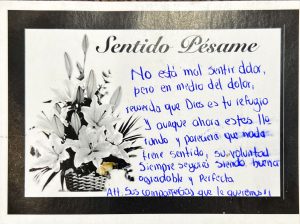 Sentido Pésame
No está mal sentir dolor,
pero en medio del dolor,
recuerda que Dios es tu refugio
Y aunque ahora estes llo
rando y pareciera que nada
tiene sentido, su voluntad
siempre seguirá siendo buena
agradable y perfecta
Att. Sus compañeros que le queremos!!